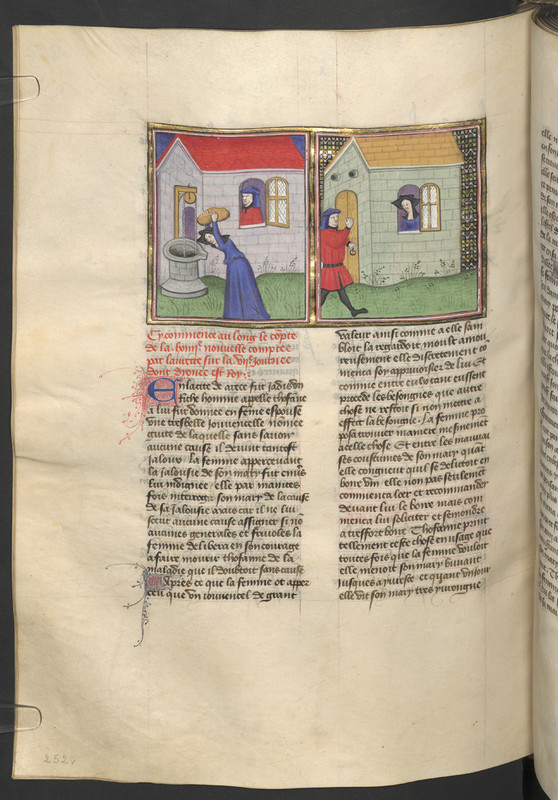 Cy commence au long le cōpte
de la .iiij.e nouuelle comptee
par laurete sur la vij.e iournee
dont dyonee est Roy :
En la cite de arece fut iadis vn
riche homme appelle thofane
a lui fut donnee en feme espouse
vne tresbelle iouuencelle nōmee
gitte de laquelle sans sauoir
aucune cause il deuint tantost
ialoux La femme apperceuant
la ialousie de son mary fut
indignee elle par maintes
fois interroga son mary de la cause
de sa ialousie mais car il ne lui
sceut aucune cause assigner si nō
aucunes generales et friuoles la
femme delibera en son courage
a faire mourir thofane de la
maladie que il doubtoit sans cause
Apres ce que la femme ot apper
ceu que vn iouuencel de grant
valeur ainsi comme a elle sem
bloit la regardoit moult amou
reusement elle discretement co
menca soy appriuoiser de lui Et
comme entre eulx tant eussent
procede les besongnes que autre
chose ne restoit si non mettre a
effect la besongne. La femme pro
posa trouuer maniere mesmement
a celle chose. Et entre les mauuai
ses coustumes de son mary quāt
elle congneut quil se delictoit en
boire vin elle non pas seulement
commenca loer et recommander
deuant lui le boire mais com
menca lui soliciter et semondre
a tresfort boire Thofanne print
tellement ceste chose en usage que
toutes fois que la femme vouloit
elle menoit son mary buuant
iusques a yuresse et quant vn iour
elle vit son mary tres yurongne
252v